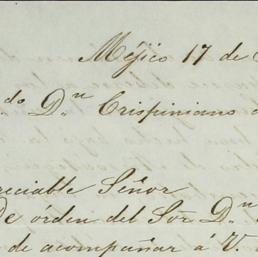 Méjico 17 de
do. Dn. Crispiniano
reciable Señor
De órden del Sor. Dn.
de acompañar á V.